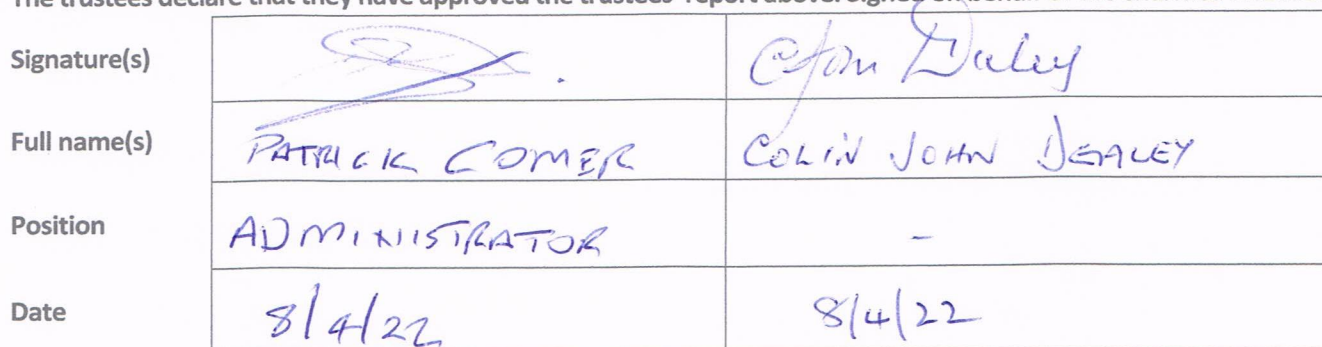 The trustees declare that they have approved the trustees' report above. Signed on behalf of the
Signature(s)
Full name(s) PATRICK COMER COLIN JOHN DEALEY
Position ADMINISTRATOR -
Date 8/4/22 8/4/22